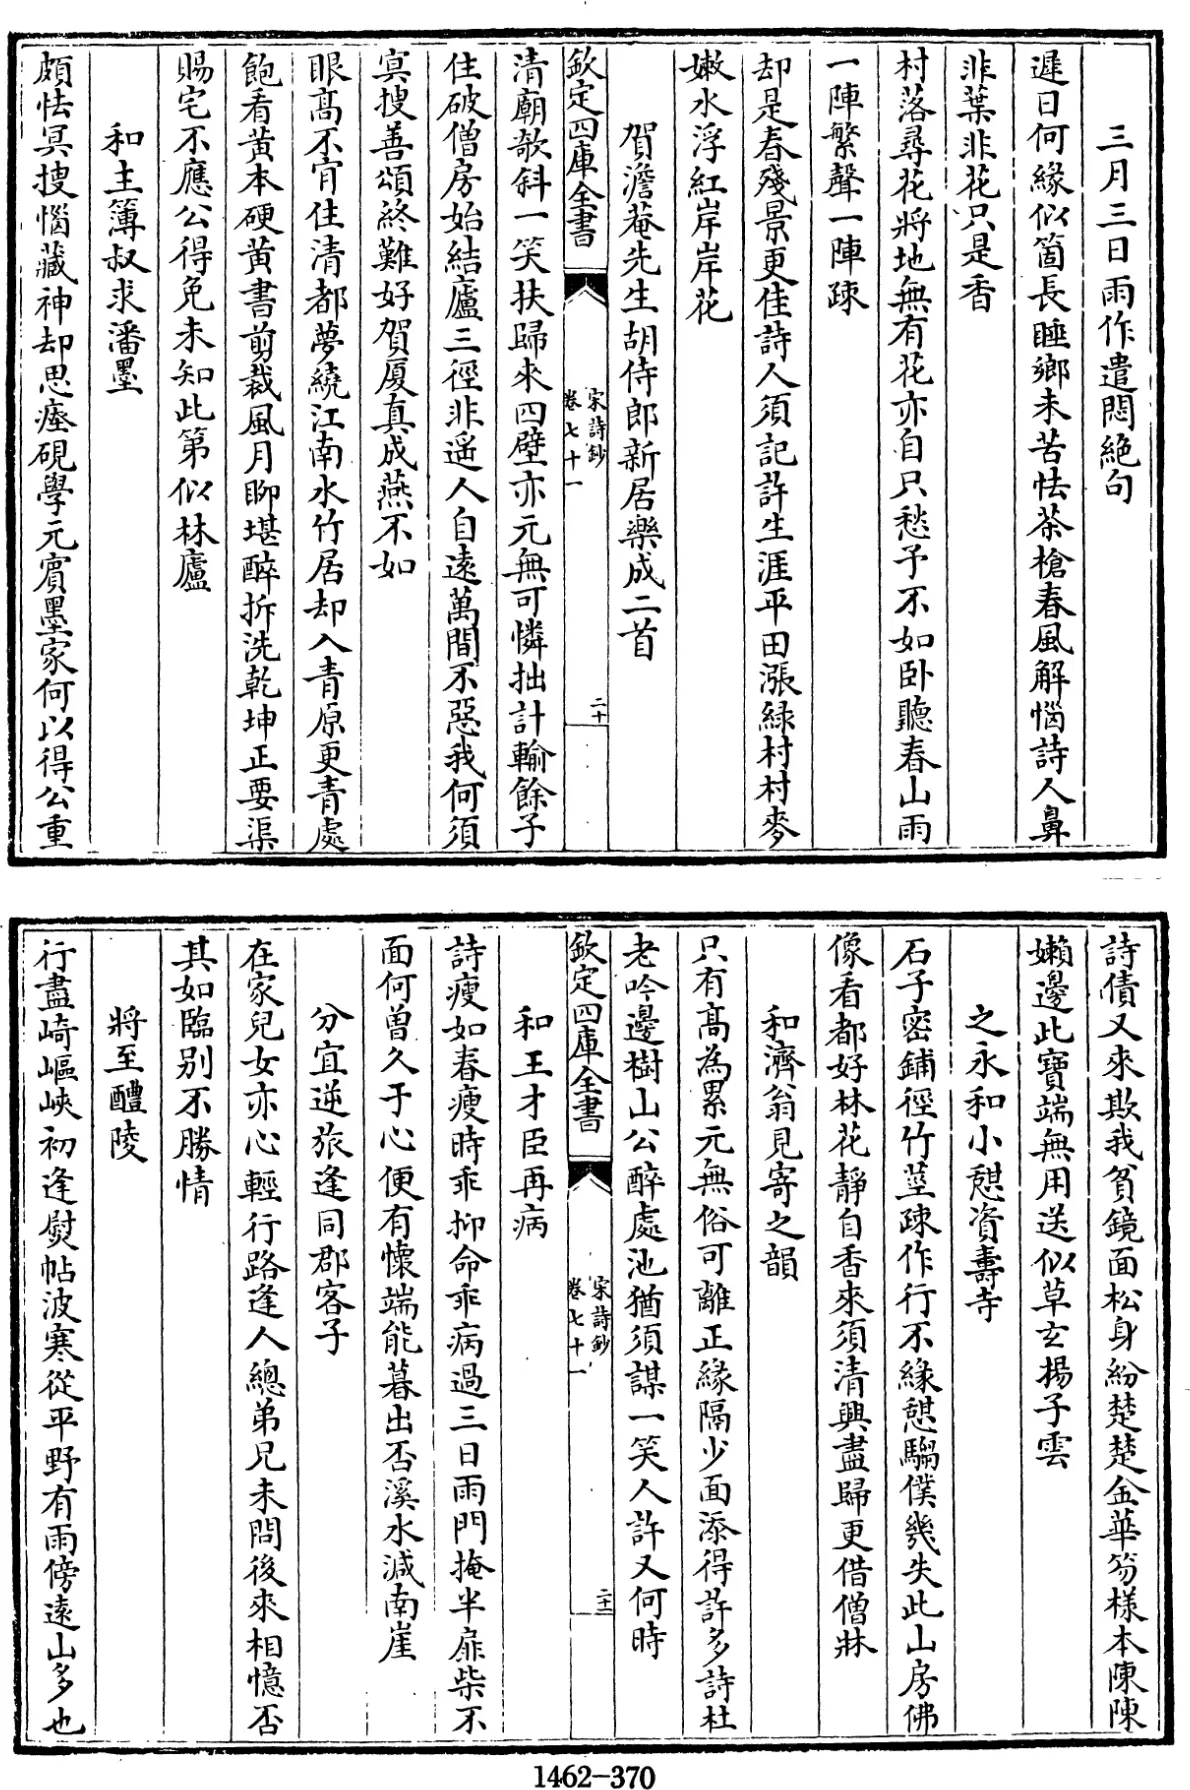 三月三日雨作遣悶絶句
遲日何緣似箇長睡鄉未苦怯茶槍春風解惱詩人鼻
非葉非花只是香
村落尋花將地無有花亦自只愁予不如卧聽春山雨
一陣繁聲一陣疎
却是春殘景更佳詩人須記許生涯平田漲緑村村麥
嫩水浮紅岸岸花
賀澹菴先生胡侍郎新居樂成二首
欽定四庫全書
宋詩鈔
卷七十一
二十
清廟欹斜一笑扶歸來四壁亦元無可憐拙計輸餘子
住破僧房始結廬三徑非遥人自遠萬間不惡我何須
冥搜善頌終難好賀厦真成燕不如
眼高不肯住清都夢繞江南水竹居却入青原更青處
飽看黄本硬黄書剪裁風月聊堪醉拆洗乾坤正要渠
賜宅不應公得免未知此第似林廬
和主簿叔求潘墨
頗怯冥搜惱藏神却思瘞硯學元賓墨家何以得公重
詩債又來欺我貧鏡面松身紛楚楚金華笏様本陳陳
嬾邊此寶端無用送似草玄揚子雲
之永和小憩資壽寺
石子密鋪徑竹莖疎作行不緣憩騶僕幾失此山房佛
像看都好林花靜自香來須清興盡歸更借僧牀
和濟翁見寄之韻
只有髙為累元無俗可離正緣隔少面添得許多詩杜
老吟邊樹山公醉處池猶須謀一笑人許又何時
欽定四庫全書
宋詩鈔
卷七十一
二十一
和王才臣再病
詩瘦如春瘦時乖抑命乖病過三日雨門掩半扉柴不
面何曽久于心便有懷端能暮出否溪水減南崖
分宜逆旅逢同郡客子
在家兒女亦心輕行路逢人總弟兄未問後來相憶否
其如臨别不勝情
將至醴陵
行盡崎嶇峽初逢熨帖波寒從平野有雨傍遠山多也
1462-370